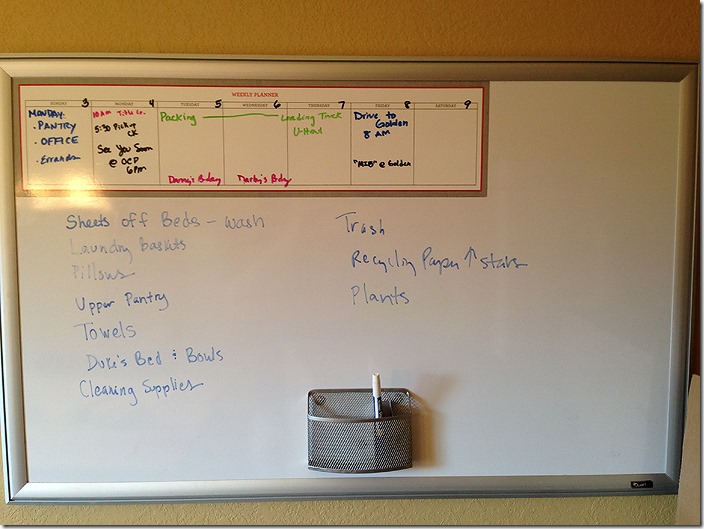 WEEKLY PLANNER
SUNDAY 3
MONDAY 4
TUESDAY 5
WEDNESDAY 6
THURSDAY 7
FRIDAY 8
SATURDAY 9
MONDAY:
· PANTRY
· OFFICE
· Errands
10AM Title Co.
5:30 Pickup
CK
See You Soon
@ OCP
6PM
Packing
Danny's Bday
Marley's Bday
Loading Truck
U-Haul
Drive to
Golden
8 AM
"MIB" @ Golden
Sheets off Beds - wash
Laundry Baskets
Pillows
Upper Pantry
Towels
Duke's Bed & Bowls
Cleaning Supplies
Trash
Recycling Paper ↑ stairs
Plants